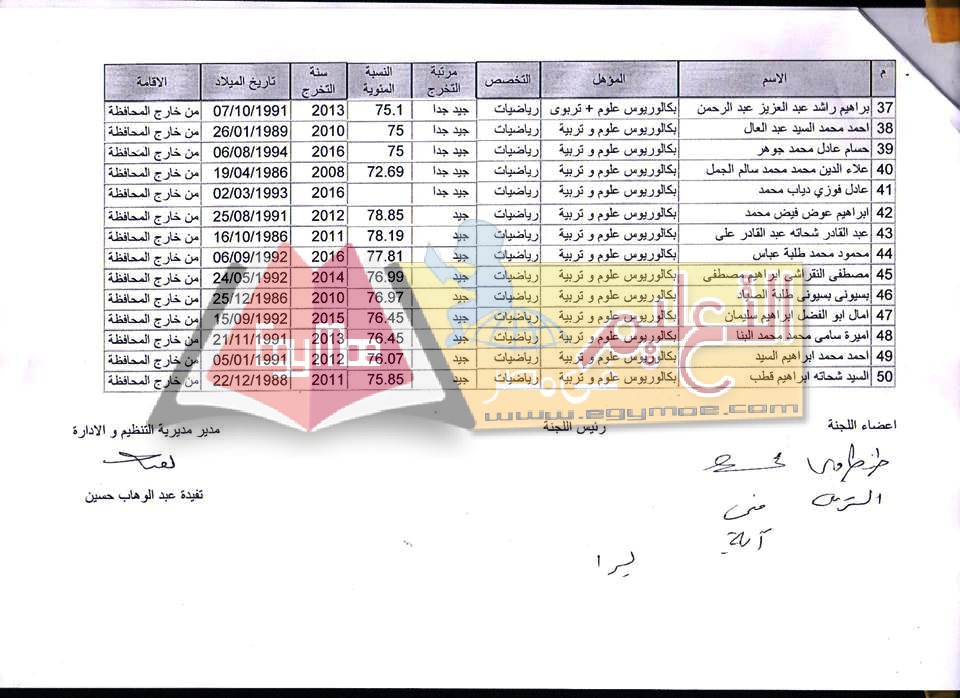 م الاسم المؤهل التخصص مرتبة التخرج النسبة المئوية سنة التخرج تاريخ الميلاد الاقامة
37 براهيم راشد عبد العزيز عبد الرحمن بكالوريوس علوم + تربوى رياضيات جيد جدا 75.1 2013 07/10/1991 من خارج المحافظة
38 احمد محمد السيد عبد العال بكالوريوس علوم و تربية رياضيات جيد جدا 75 2010 26/01/1989 من خارج المحافظة
39 حسام عادل محمد جوهر بكالوريوس علوم و تربية رياضيات جيد جدا 75 2016 06/08/1994 من خارج المحافظة
40 علاء الدين محمد محمد سالم الجمل بكالوريوس علوم و تربية رياضيات جيد جدا 72.69 2008 19/04/1986 من خارج المحافظة
41 عادل فوزي دياب محمد بكالوريوس علوم و تربية رياضيات جيد جدا 2016 02/03/1993 من خارج المحافظة
42 ابراهيم عوض فيض محمد بكالوريوس علوم و تربية رياضيات جيد 78.85 2012 25/08/1991 من خارج المحافظة
43 عبد القادر شحاته عبد القادر على بكالوريوس علوم و تربية رياضيات جيد 78.19 2011 16/10/1986 من خارج المحافظة
44 محمود محمد طلبة عباس بكالوريوس علوم و تربية رياضيات جيد 77.81 2016 06/09/1992 من خارج المحافظة
45 مصطفى النقراشى ابراهيم مصطفى بكالوريوس علوم و تربية رياضيات جيد 76.99 2014 24/05/1992 من خارج المحافظة
46 بسيونى بسيونى طلبة الصياد بكالوريوس علوم و تربية رياضيات جيد 76.97 2010 25/12/1986 من خارج المحافظة
47 امال ابو الفضل ابراهيم سليمان بكالوريوس علوم و تربية رياضيات جيد 76.45 2015 15/09/1992 من خارج المحافظة
48 اميرة سامى محمد محمد البنا بكالوريوس علوم و تربية رياضيات جيد 76.45 2013 21/11/1991 من خارج المحافظة
49 احمد محمد ابراهيم السيد بكالوريوس علوم و تربية رياضيات جيد 76.07 2012 05/01/1991 من خارج المحافظة
50 السيد شحاته ابراهيم قطب بكالوريوس علوم و تربية رياضيات جيد 75.85 2011 22/12/1988 من خارج المحافظة
التعليم
فى مصر
Egymoe
www.egymoe.com
اعضاء اللجنة رئيس اللجنة مدير مديرية التنظيم و الادارة
منى
آية
يسرا
تفيدة عبد الوهاب حسين